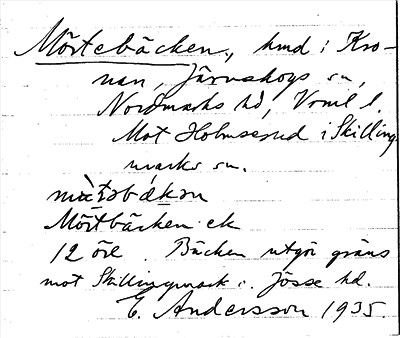 Mörtebäcken, hmd i Kro-
nan, Järnskogs sn,
Nordmarks hd, Vrml l.
Mot Holmserud i Skillings
marks sn.
Mörtbäcken ek
12 öre. Bäcken utgör gräns
mot Skillingmark i Jösse hd.
E. Andersson 1935.